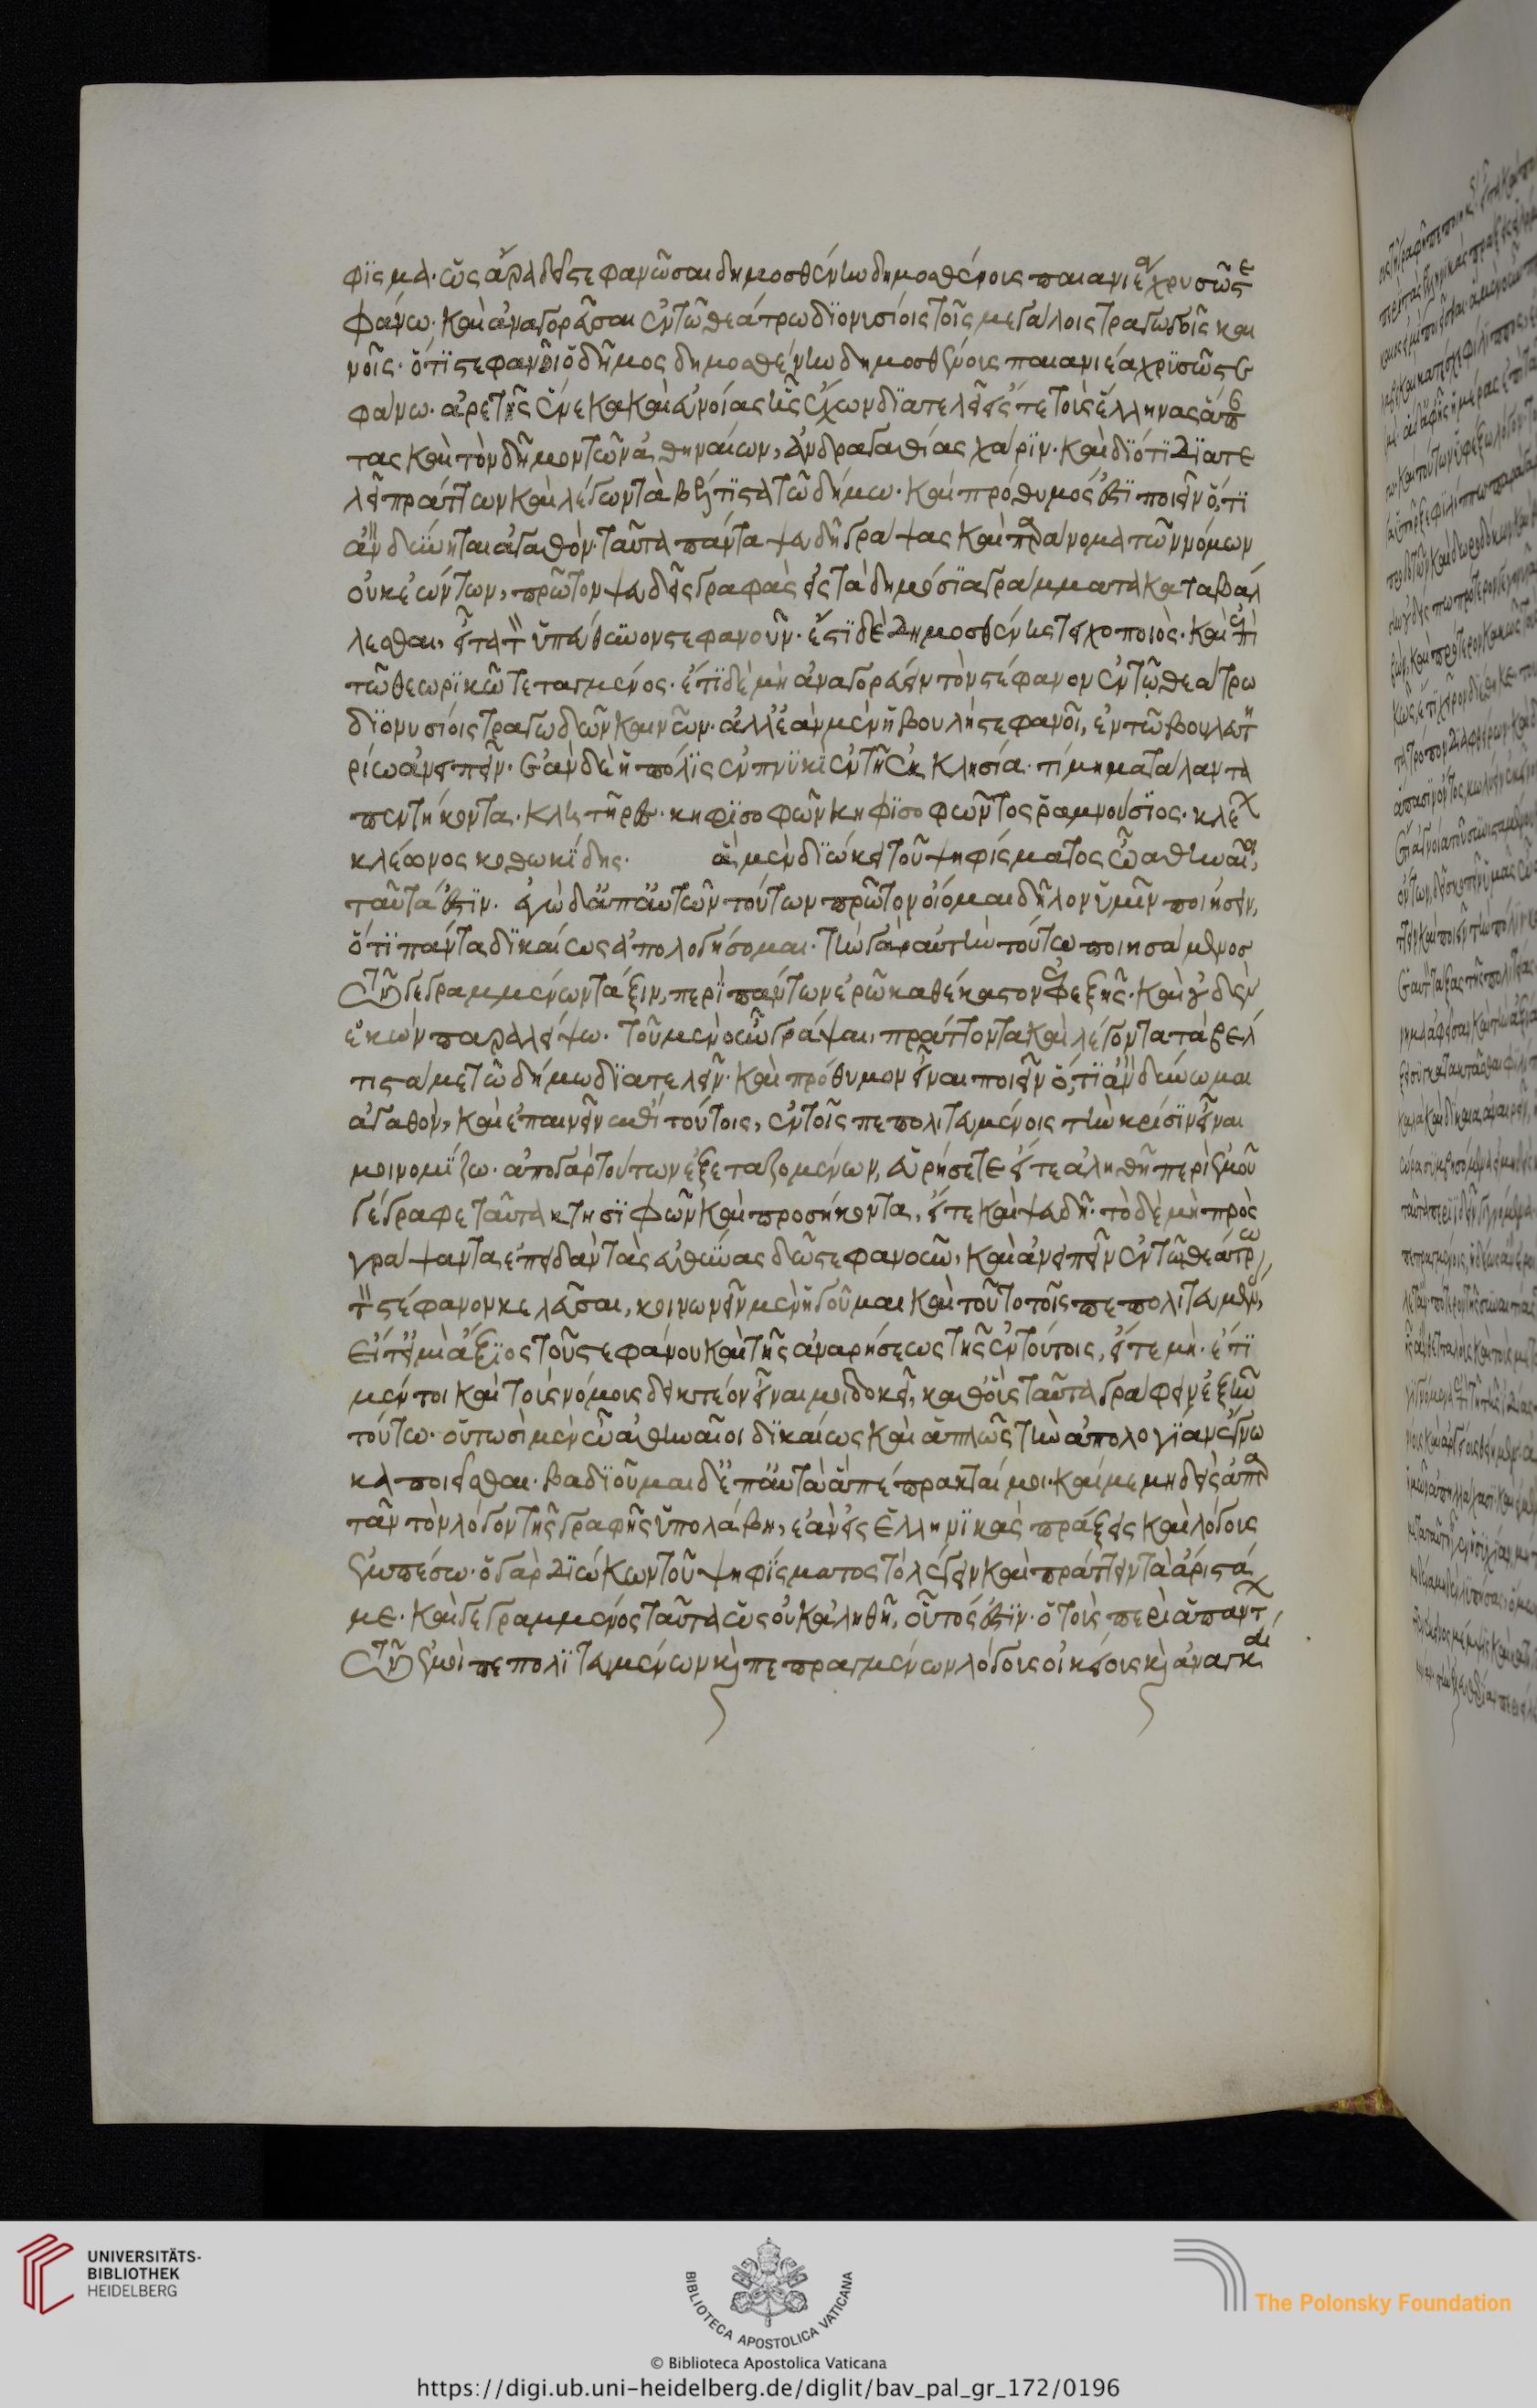 φισμα· ὡς ἄρα δεῖ στεφανῶσαι δημοσθένην δημοσθένους παιανιέα χρυσῶ στε
φάνω· καὶ ἀναγορεῦσαι ἐν τῶ θεάτρω διονυσίοις τοῖς μεγάλοις τραγωδοῖς και
νοῖς· ὅτι στεφανοῖ ὁ δῆμος δημοσθένην δημοσθένους παιανιέα χρυσῶ στε
φάνω· ἀρετῆς ἕνεκα καὶ εὐνοίας ἧς ἔχων διατελεῖ εἴς τε τοὺς ἕλληνας ἅπαν
τας καὶ τὸν δῆμον τῶν ἀθηναίων, ἀνδραγαθίας χάριν· καὶ διότι διατε
λεῖ πράττων καὶ λέγων τὰ βέλτιστα τῶ δήμω· καὶ πρόθυμός ἐστι ποιεῖν ὅ,τι
ἂν δύνηται ἀγαθόν· ταῦτα πάντα ψευδῆ γράψας καὶ παράνομα τῶν νόμων
οὐκ ἐώντων, πρῶτον ψευδεῖς γραφὰς εἰς τὰ δημόσια γράμματα καταβάλ
λεσθαι, εἶτα τὸν ὑπεύθυνον στεφανοῦν· ἔστι δὲ δημοσθένης τειχοποιὸς· καὶ ἐπὶ
τῶ θεωρικῶ τεταγμένος· ἔτι δὲ μὴ ἀναγορεύειν τὸν στέφανον ἐν τῶ θεάτρω
διονυσίοις τραγωδῶν καινῶν· ἀλλ' ἐὰν μὲν ἡ βουλὴ στεφανοῖ, ἐν τῶ βουλευτη
ρίω ἀνειπεῖν· ἐὰν δὲ ἡ πόλις ἐν πνυκὶ ἐν τῆ ἐκκλησία· τίμημα τάλαντα
πεντήκοντα· κλητῆρες· κηφισοφῶν κηφισοφῶντος ῥαμνούσιος· κλέων
κλέωνος κοθωκίδης· ἃ μὲν διώκει τοῦ ψηφίσματος ὦ ἀθηναῖοι,
ταῦτά ἐστιν· ἐγὼ δ' ἀπ' αὐτῶν τούτων πρῶτον οἴομαι δῆλον ὑμῖν ποιήσειν,
ὅτι πάντα δικαίως ἀπολογήσομαι· τὴν γὰρ αὐτὴν τούτω ποιησάμενος
τῶν γεγραμμένων τάξιν, περὶ πάντων ἐρῶ καθ' ἕκαστον ἐφεξῆς· καὶ οὐδὲν
ἑκὼν παραλείψω· τοῦ μὲν οὖν γράψαι, πράττοντα καὶ λέγοντα τὰ βέλ
τιστά με τῶ δήμω διατελεῖν· καὶ πρόθυμον εἶναι ποιεῖν ὅ,τι ἂν δύνωμαι
ἀγαθὸν, καὶ ἐπαινεῖν ἐπὶ τούτοις, ἐν τοῖς πεπολιτευμένοις τὴν κρίσιν εἶναι
μοι νομίζω· ἀπὸ γὰρ τούτων ἐξεταζομένων, εὑρήσετε εἴτε ἀληθῆ περὶ ἐμοῦ
γέγραφε ταῦτα κτησιφῶν καὶ προσήκοντα, εἴτε καὶ ψευδῆ· τὸ δὲ μὴ πρὸς
γράψαντα, ἐπειδὰν τὰς εὐθύνας δῶ στεφανοῦν, καὶ ἀνειπεῖν ἐν τῶ θεάτρω
τὸν στέφανον κελεῦσαι, κοινωνεῖν μὲν ἡγοῦμαι καὶ τοῦτο τοῖς πεπολιτευμένοις,
εἴτε μὴ ἄξιος τοῦ στεφάνου καὶ τῆς ἀναρήσεως τῆς ἐν τούτοις, εἴτε μὴ· ἔτι
μέντοι καὶ τοὺς νόμους δεικτέον εἶναι μοι δοκεῖ, καθ' οὓς ταῦτα γράφειν ἐξῆν
τούτω· οὑτωσὶ μὲν ὦ ἀθηναῖοι δικαίως καὶ ἁπλῶς τὴν ἀπολογίαν ἔγνω
κα ποιεῖσθαι· βαδιοῦμαι δ' ἐπ' αὐτὰ ἃ πέπρακταί μοι· καί με μηδεὶς ἀπαρ
τᾶν τὸν λόγον τῆς γραφῆς ὑπολάβη, ἐὰν εἰς ἑλληνικὰς πράξεις καὶ λόγους
ἐμπέσω· ὁ γὰρ διώκων τοῦ ψηφίσματος τὸ λέγειν καὶ πράττειν τὰ ἄριστά
με· καὶ γεγραμμένος ταῦτα ὡς οὐκ ἀληθῆ, οὗτός ἐστιν· ὁ τοὺς περὶ ἁπάντων
τῶν ἐμοὶ πεπολιτευμένων κὶ πεπραγμένων λόγους οἰκείους κὶ ἀναγκαί
UNIVERSITÄTS-
BIBLIOTHEK
HEIDELBERG
BIBLIOTECA APOSTOLICA VATICANA
The Polonsky Foundation
© Biblioteca Apostolica Vaticana
https://digi.ub.uni-heidelberg.de/diglit/bav_pal_gr_172/0196